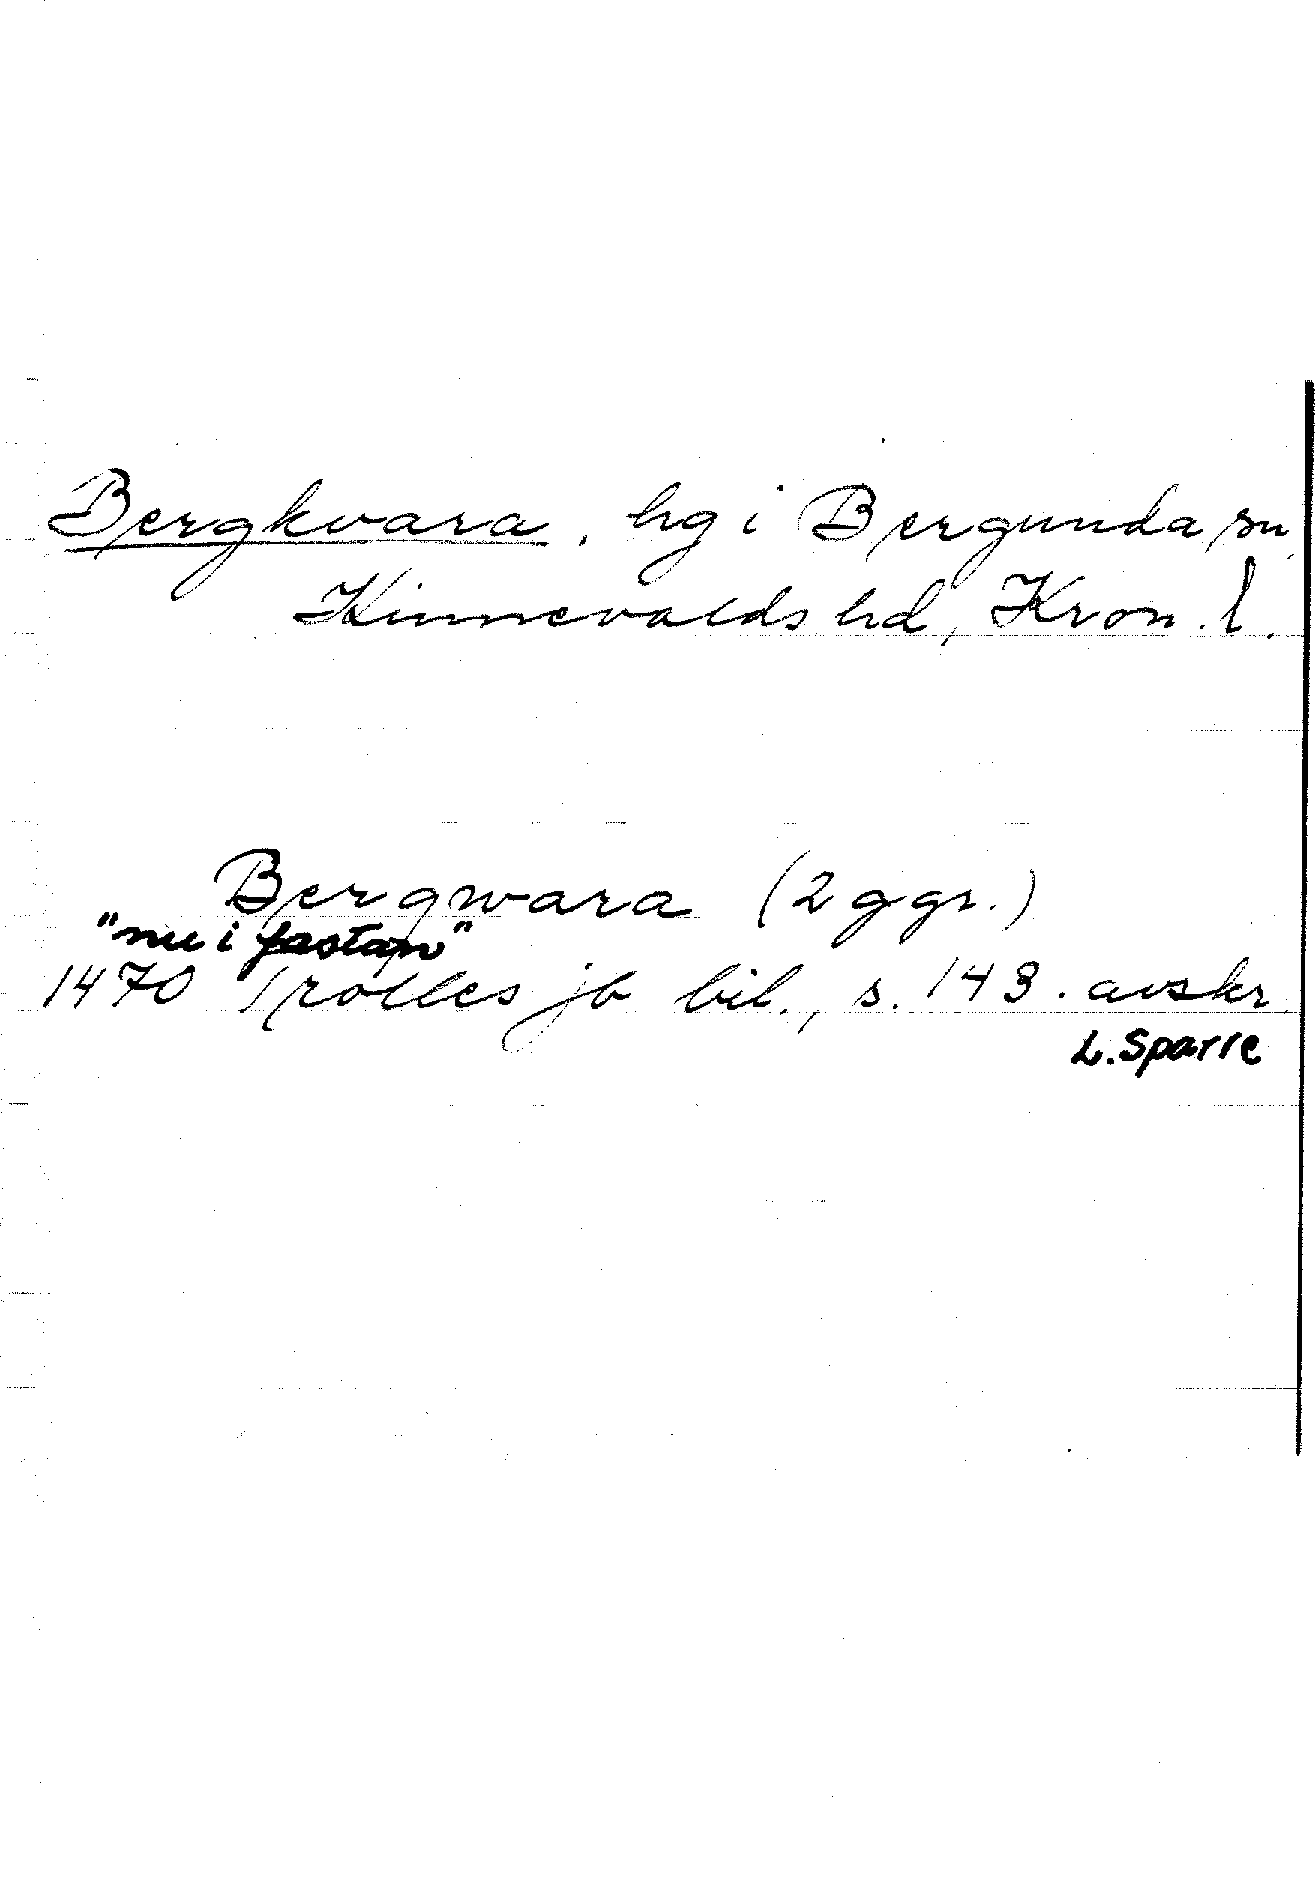 Bergkvara, hg i Bergunda sn,
Kinnevalds hd, Kron. l.
Bergwara (2 ggr.)
"nu i fastan"
1470 Trolles jb bil., s. 143. avskr.
L. Sparre